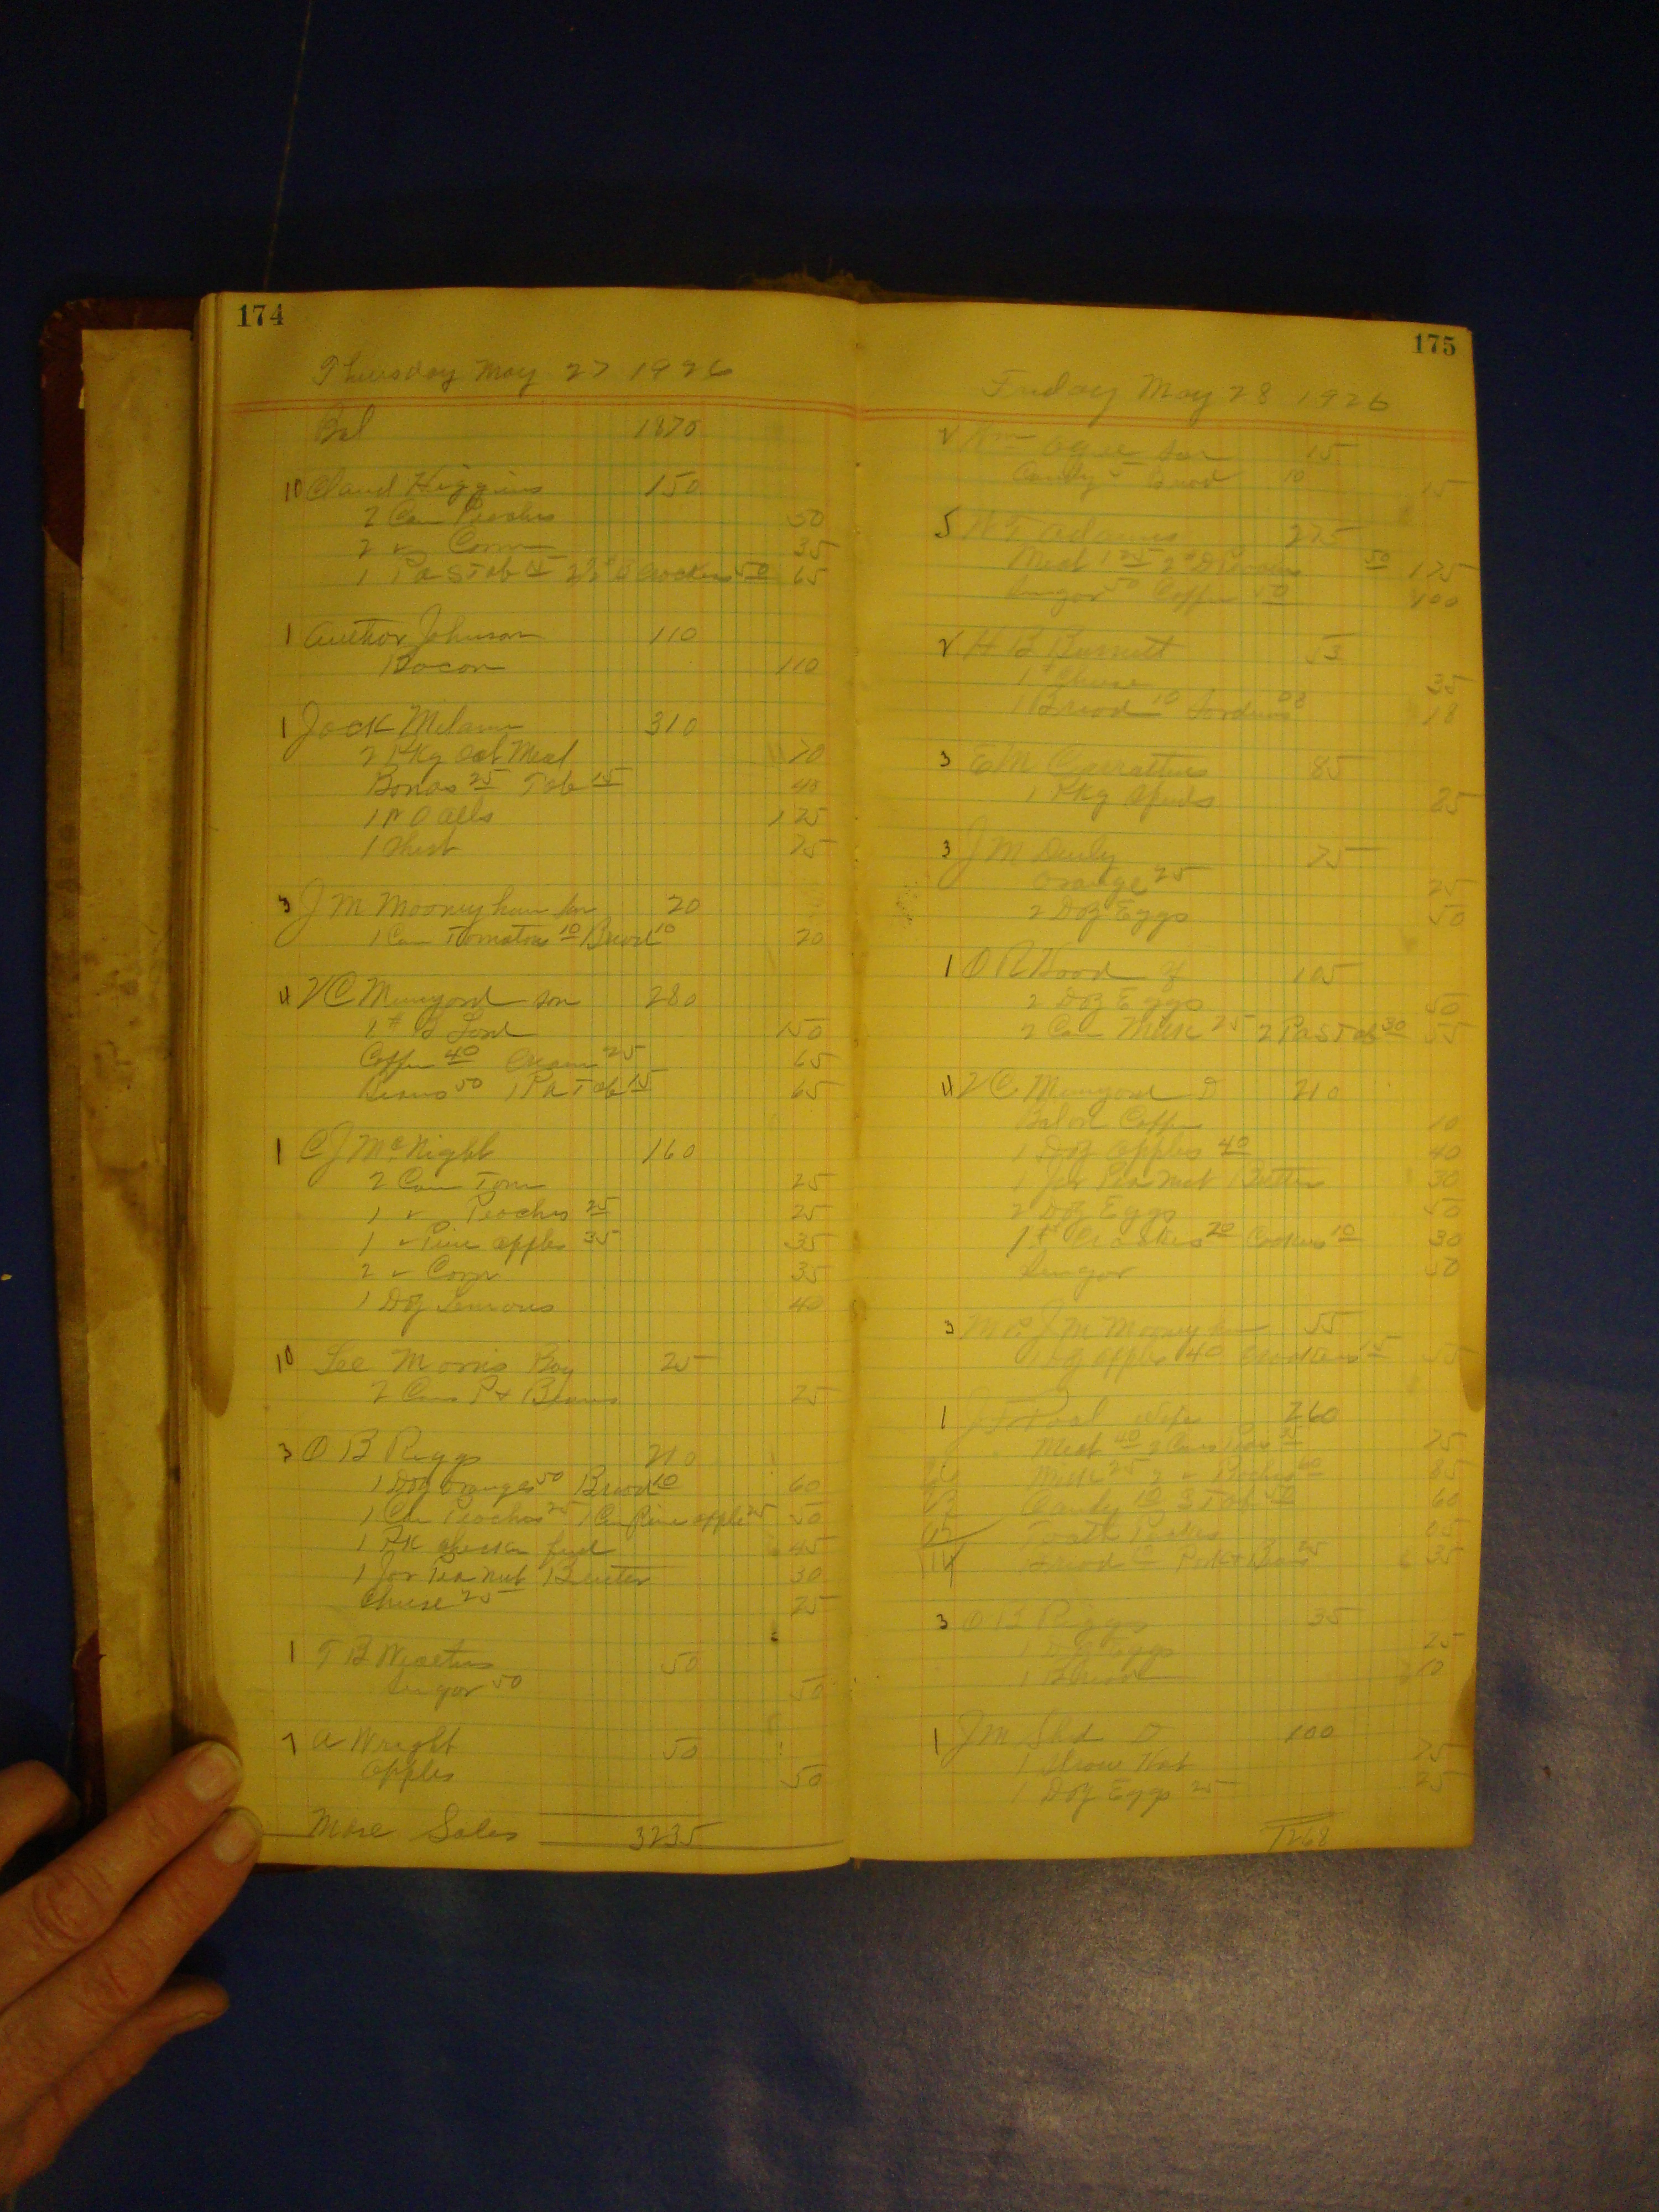 174
Thursday May 27 1926
Bal 1870
10 Claud Higgins 150
2 Can Peaches 50
2 " Corn 35
1 Pa S Tob 15 2½ # Crackers 50 65
1 Author Johnson 110
Bacon 110
1 Jack Milam 310
2 Pkg Oat Meal 70
Bonas 25 Tob 15 40
1 Pr O alls 125
1 Shirt 75
3 J M Mooneyham son 20
1 Can Tomatoes 10 Bread 10 20
4 V C Munyard son 280
1 # Lard 150
Coffee 40 Cream 25 65
Beans 50 1 Pa Tob 15 65
1 C J McNight 160
2 Can Tom 25
1 " Peaches 25 25
1 " Pine apples 35 35
2 " Corn 35
1 Doz Lemons 40
10 Lee Morris Boy 25
2 Cans P + Beans 25
3 O B Riggs 210
1 Doz oranges 50 Bread 10 60
1 Can Peaches 25 1 Can Pine apple 25 50
1 PK chicken feed 45
1 Jar Pea nut Butter 30
Cheese 25 25
1 T B 50
Sugar 50 50
7 A Wright 50
apples 50
More Sales 3235
175
Friday May 28 1926
son 15
Candy 5 Bread 10 15
5 W T Adams 275
Meat 125 2 # D Peaches 50 175
Sugar 50 Coffee 50 100
H B Burnett 53
1 # Cheese 35
1 Bread 10 Sardines 08 18
3 E M Carrathers 85
1 Pkg Spuds 85
3 J M Denly 75
Orange 25 25
2 Doz Eggs 50
1 O R Hood 105
2 Doz Eggs 50
2 Can Milk 25 2 Pa S Tob 30 55
4 V C Munyard D 210
Bal on Coffee 10
1 Doz apples 40 40
1 Jar Pea Nut Butter 30
2 Doz Eggs 50
1 # Crackers 20 Cookies 10 30
Sugar 50
3 Mrs J M Mooneyham 55
1 Doz apples 40 Crackers 15 55
1 J T Pool Wife 260
Meat 40 2 Cans Peas 35 75
Milk 25 2 " Peaches 60 85
Candy 10 3 Tob 50 60
Tooth 05
Bread 10 Pork + Beans 25 35
3 O B Riggs 35
1 Doz Eggs 25
1 Bread 10
1 J M D 100
1 Straw Hat 75
1 Doz Eggs 25 25
1268